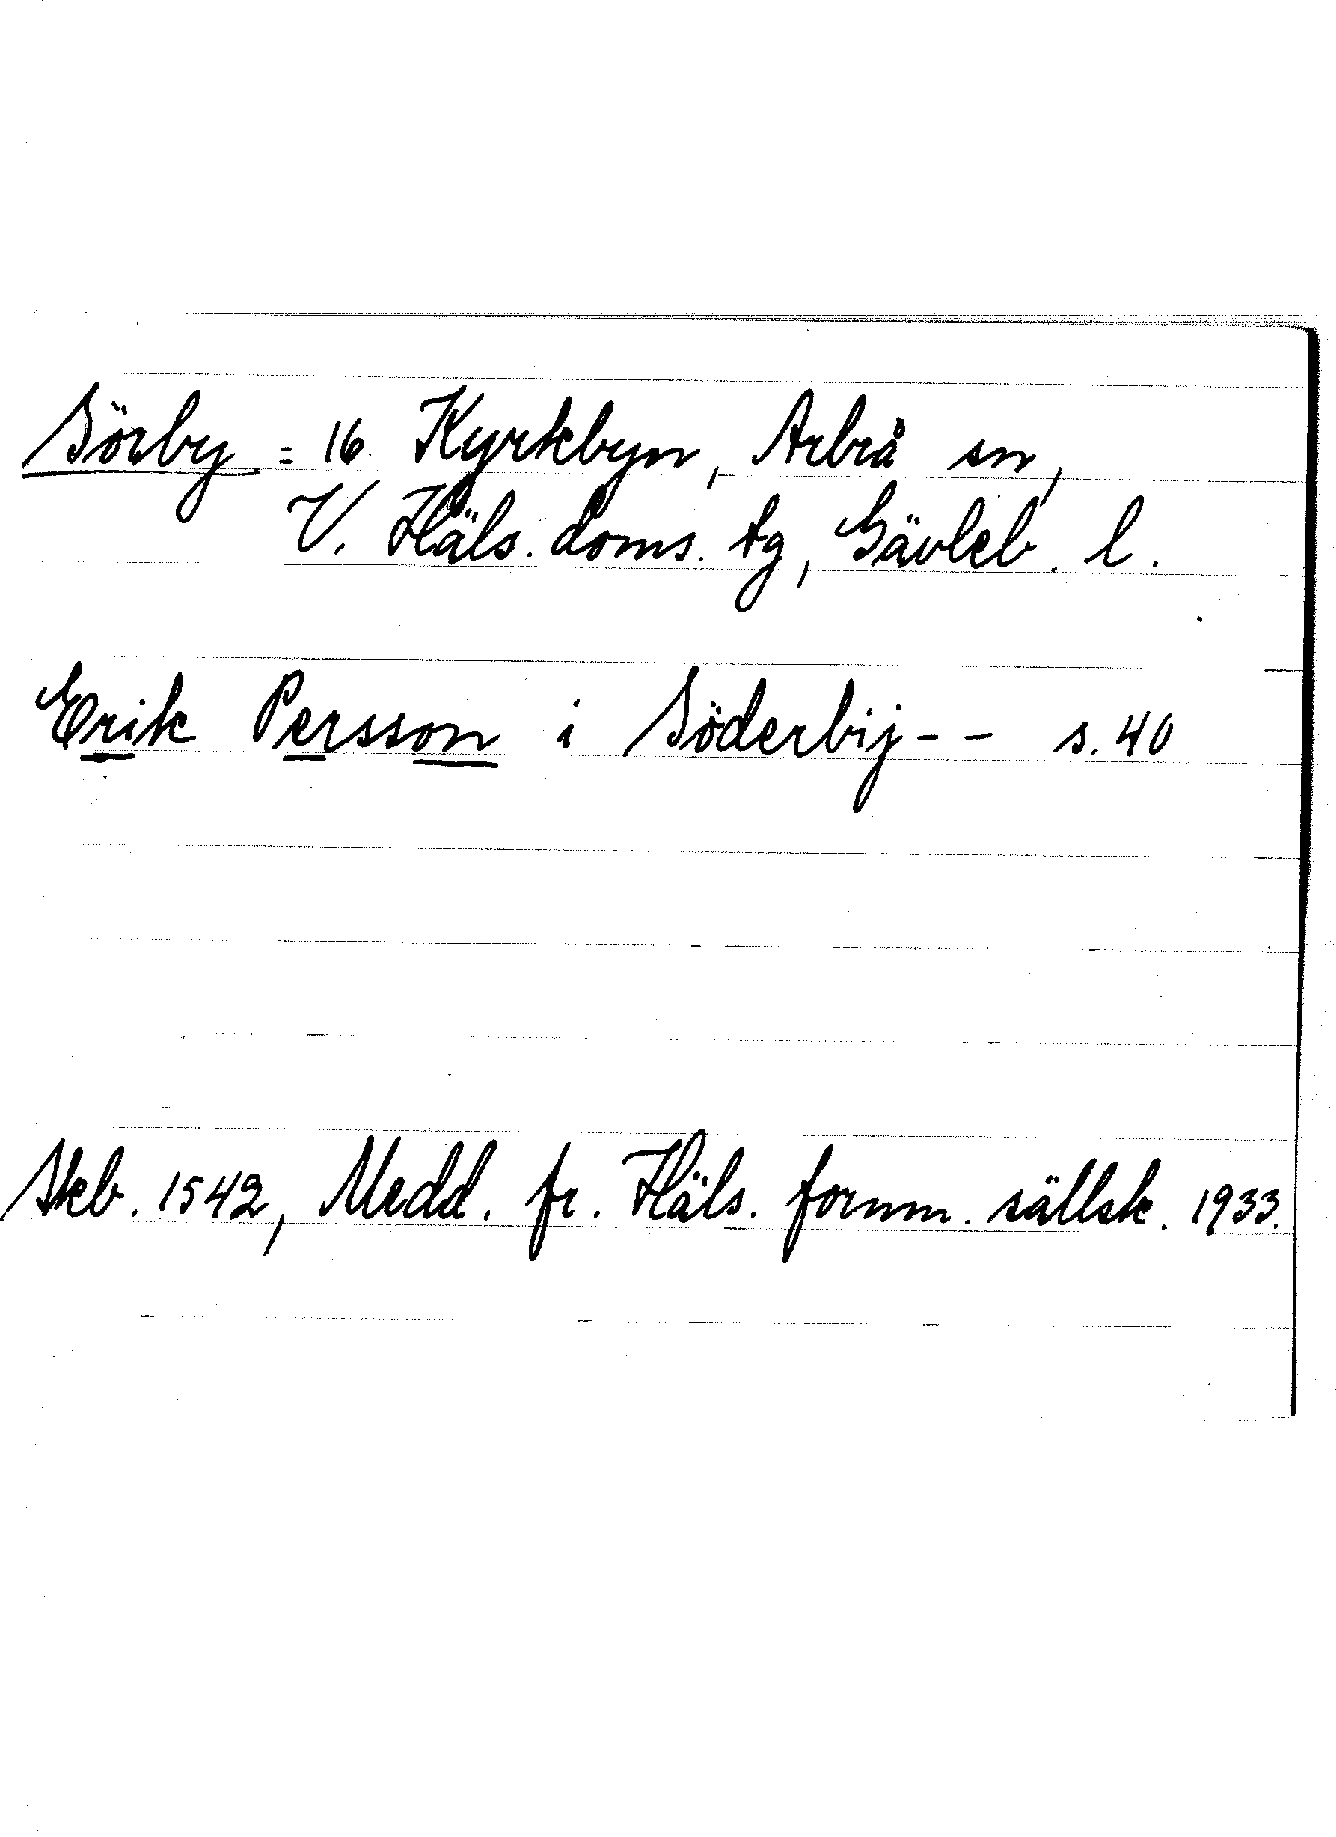 Sörby = 16 Kyrkbyn, Arbrå sn,
V. Häls. doms. tg, Gävleb. l.
Erik Persson i Söderbÿ - - s. 40
Skb. 1542, Medd. fr. Häls. fornm. sällsk. 1933.